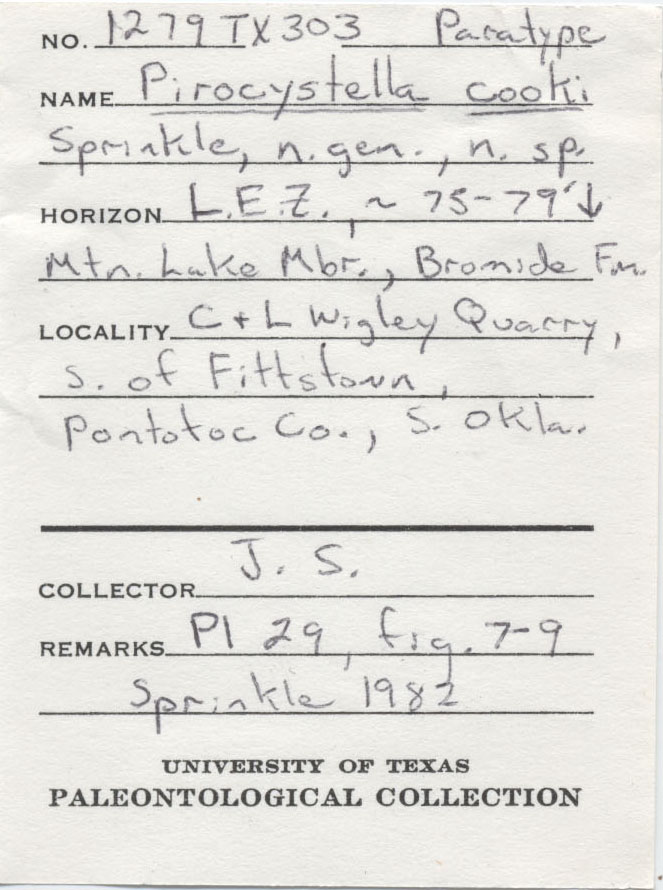 NO. 1279TX303 Paratype
NAME Pirocystella cooki
Sprinkle, n. gen., n. sp.
HORIZON L.E.Z., ~ 75-79'↓
Mtn. Lake Mbr., Bromide Fm.
LOCALITY C + L Wigley Quarry,
S. of Fittstown,
Pontotoc Co., S. Okla.
COLLECTOR J. S.
REMARKS Pl 29, fig. 7-9
Sprinkle 1982
UNIVERSITY OF TEXAS
PALEONTOLOGICAL COLLECTION